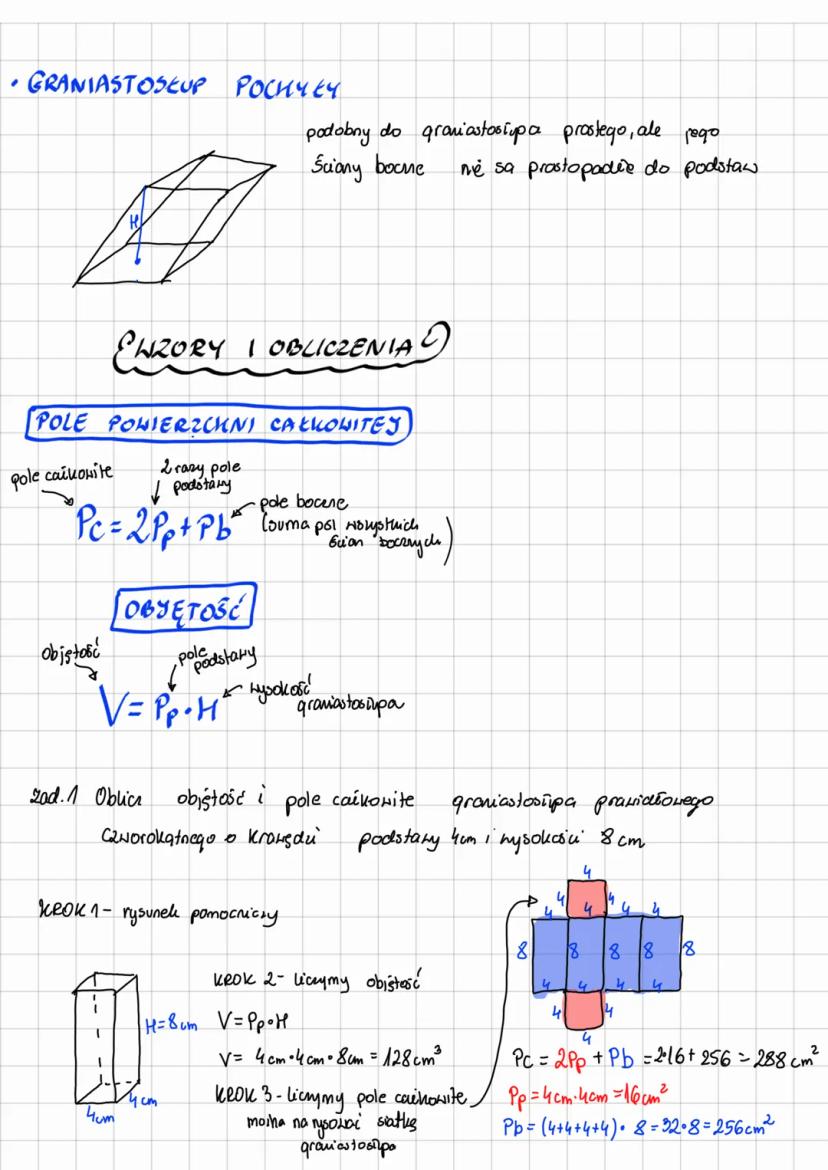 • GRANIASTOSŁUP POCHYŁY
podobny do graniastosłupa prostego, ale jego
ściany boczne nie są prostopadłe do podstaw
H
WZORY I OBLICZENIA
POLE POWIERZCHNI CAŁKOWITEJ
pole całkowite
2 razy pole
podstawy
pole boczne
(suma pól wszystkich
ścian bocznych)
Pc = 2Pp + Pb
OBJĘTOŚĆ
objętość
pole
podstawy
wysokość
graniastosłupa
V = Pp • H
zad. 1 Oblicz objętość i pole całkowite graniastosłupa prawidłowego
czworokątnego o krawędzi podstawy 4cm i wysokości 8 cm
KROK 1 - rysunek pomocniczy
H = 8 cm
4 cm
4cm
KROK 2 - liczymy objętość
V = Pp • H
V = 4 cm • 4 cm • 8 cm = 128 cm³
KROK 3 - liczymy pole całkowite
można narysować siatkę
graniastosłupa
4
4 4
4 4 4 4
8 8 8 8 8
4 4 4 4
4 4
4
Pc = 2Pp + Pb = 2•16 + 256 = 288 cm²
Pp = 4cm • 4cm = 16 cm²
Pb = (4+4+4+4) • 8 = 32 • 8 = 256 cm²